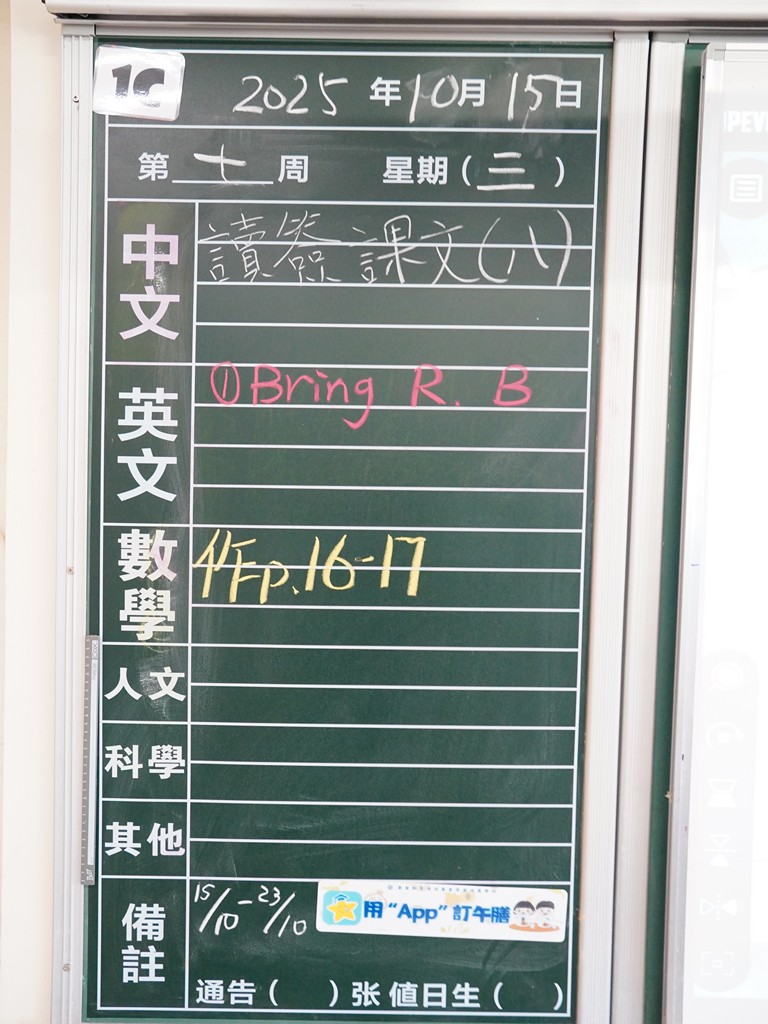 1C
2025 年 10 月 15 日
第 七 周 星期 ( 三 )
中文
讀簽課文(八)
英文
① Bring R. B
數學
作p.16-17
人文
科學
其他
備註
15/10 - 23/10
用“App”訂午膳
通告 ( ) 张 值日生 ( )